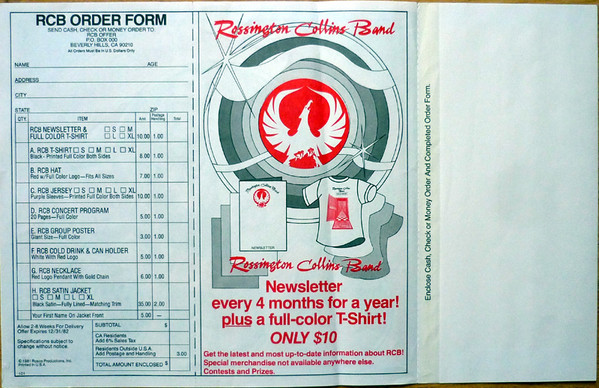 RCB ORDER FORM
SEND CASH, CHECK OR MONEY ORDER TO:
RCB OFFER
P.O. BOX 000
BEVERLY HILLS, CA 90210
All Orders Must Be In U.S. Dollars Only
NAME AGE
ADDRESS
CITY
STATE ZIP
QTY. ITEM Amt. Postage Handling Total
RCB NEWSLETTER & □ S □ M
FULL COLOR T-SHIRT □ L □ XL 10.00 1.00
A. RCB T-SHIRT □ S □ M □ L □ XL
Black - Printed Full Color Both Sides 8.00 1.00
B. RCB HAT
Red w/Full Color Logo—Fits All Sizes 7.00 1.00
C. RCB JERSEY □ S □ M □ L □ XL
Purple Sleeves—Printed Full Color Both Sides 10.00 1.00
D. RCB CONCERT PROGRAM
20 Pages—Full Color 5.00 1.00
E. RCB GROUP POSTER
Giant Size—Full Color 3.00 1.00
F. RCB COLD DRINK & CAN HOLDER
White With Red Logo 5.00 1.00
G. RCB NECKLACE
Red Logo Pendant With Gold Chain 6.00 1.00
H. RCB SATIN JACKET
□ S □ M □ L □ XL
Black Satin—Fully Lined—Matching Trim 35.00 2.00
Your First Name On Jacket Front 5.00 —
Allow 2-8 Weeks For Delivery
Offer Expires 12/31/82
Specifications subject to
change without notice
SUBTOTAL $
CA Residents
Add 6% Sales Tax
Residents Outside U.S.A.
Add Postage and Handling 3.00
TOTAL AMOUNT ENCLOSED $
Printed in U.S.A.
Rossington Collins Band
Rossington Collins Band
NEWSLETTER
Rossington Collins Band
Newsletter
every 4 months for a year!
plus a full-color T-Shirt!
ONLY $10
Get the latest and most up-to-date information about RCB!
Special merchandise not available anywhere else.
Contests and Prizes.
Enclose Cash, Check or Money Order And Completed Order Form.